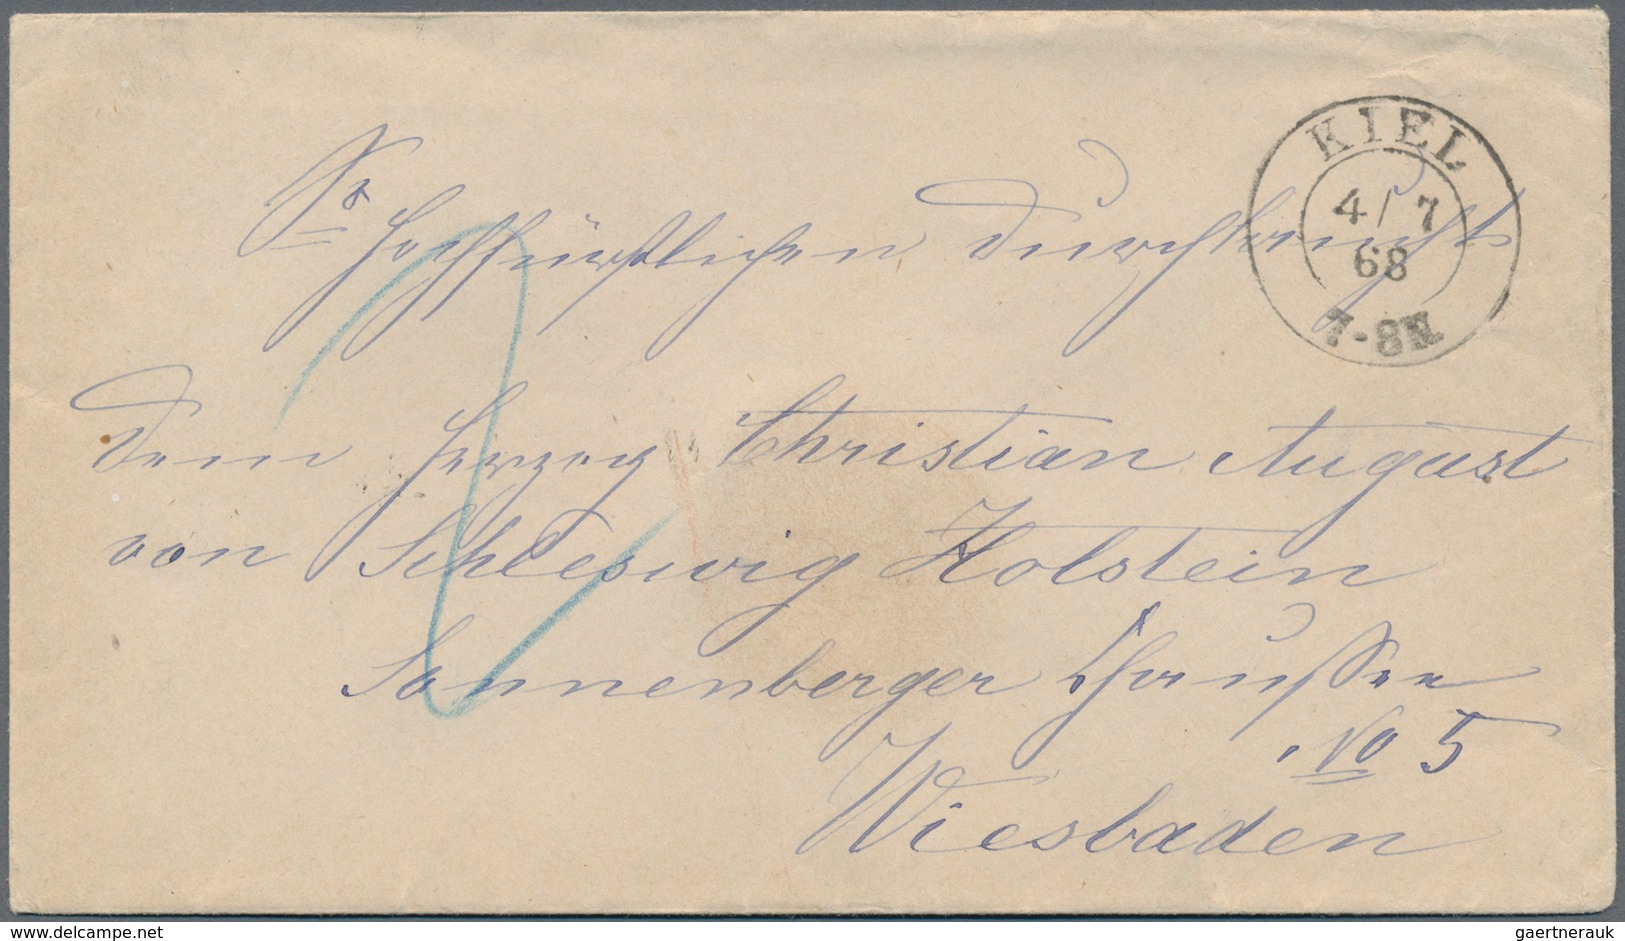 KIEL
4/7
68
7-8N
Sr Hochfürstlichen Durchlaucht
dem Herzog Christian August
von Schleswig Holstein
Sonnenberger Chaussee
No 5
Wiesbaden
2
delcampe.net
gaertnerauk